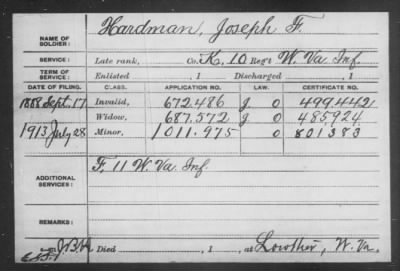 Hardman, Joseph F.
NAME OF SOLDIER:
SERVICE: Late rank, Co. K, 10 Reg't W. Va Inf.
TERM OF SERVICE: Enlisted , 1 Discharged , 1
DATE OF FILING. CLASS. APPLICATION NO. LAW. CERTIFICATE NO.
1888 Sept. 17 Invalid, 672.486 J O 499442
Widow, 687.572 J O 485924
1913 July 28 Minor, 1011.975 O 801383
ADDITIONAL SERVICES: F. 11 W. Va. Inf.
REMARKS:
Died , 1 , at Lowther, W. Va.